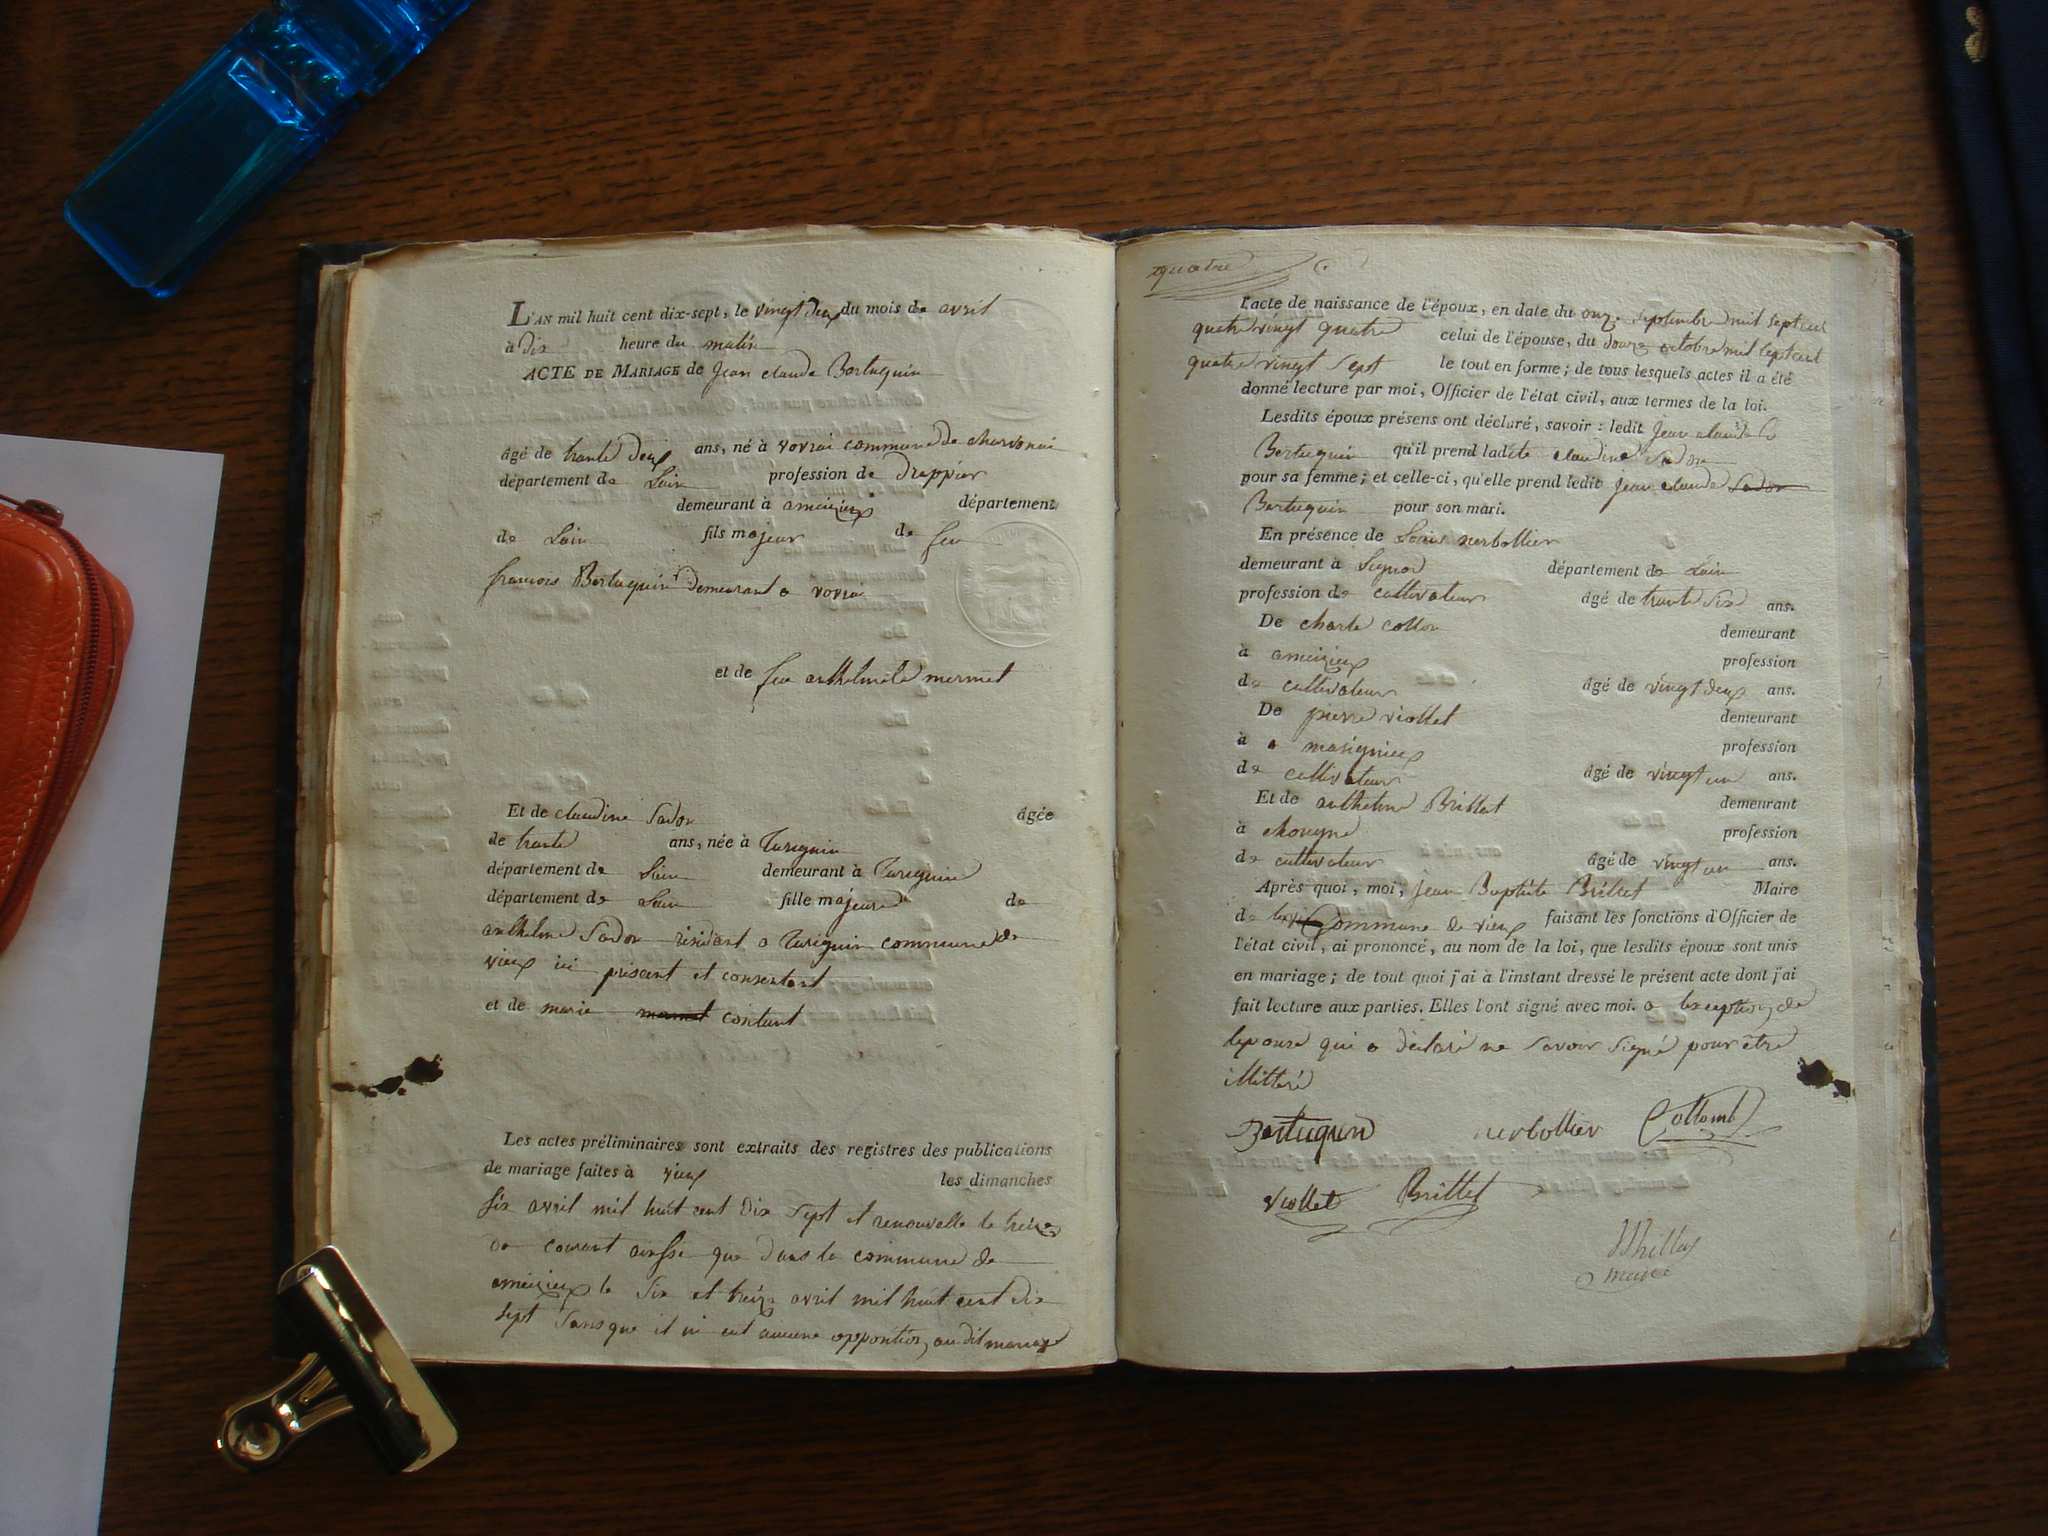 L'AN mil huit cent dix-sept, le vingt deux du mois de avril
à dix heure du matin
ACTE DE MARIAGE de Jean claude Bertuquin
âgé de trante deux ans, né à vovrai commune de charvonai
département de Lain profession de Drappier
demeurant à ameizieux département
de Lain fils majeur de feu
francois Bertuquin demeurant a vovrai
et de feu anthelmete mermet
Et de claudine Sador âgée
de trante ans, née à Turignin
département de Lain demeurant à Turignin
département de Lain fille majeure de
anthelme Sador résidant a Turignin commune de
vieux ici présant et consentant
et de marie contant
Les actes préliminaires sont extraits des registres des publications
de mariage faites à vieux les dimanches
six avril mil huit cent dix sept et renouvelle le treize
de courant ainsse que dans la commune de
ameizieux le six et treize avril mil huit cent dix
sept sans que il ni eut aucune opposition, au dit mariage
quatre
L'acte de naissance de l'époux, en date du onze septembre mil sept cent
quatre vingt quatre celui de l'épouse, du douze octobre mil sept cent
quatre vingt sept le tout en forme; de tous lesquels actes il a été
donné lecture par moi, Officier de l'état civil, aux termes de la loi.
Lesdits époux présens ont déclaré, savoir : ledit Jean claude
Bertuquin qu'il prend ladite claudine Sador
pour sa femme; et celle-ci, qu'elle prend ledit Jean claude Sador
Bertuquin pour son mari.
En présence de Louis nerbollier
demeurant à Lignod département de Lain
profession de cultivateur âgé de trante six ans.
De charle collon demeurant
à ameizieux profession
de cultivateur âgé de vingt deux ans.
De pierre viollet demeurant
à a masignieux profession
de cultivateur âgé de vingt un ans.
Et de anthelme Brillet demeurant
à chongne profession
de cultivateur âgé de vingt un ans.
Après quoi, moi, jean Baptiste Brillet Maire
de Commune de vieux faisant les fonctions d'Officier de
l'état civil, ai prononcé, au nom de la loi, que lesdits époux sont unis
en mariage; de tout quoi j'ai à l'instant dressé le présent acte dont j'ai
fait lecture aux parties. Elles l'ont signé avec moi. a lexception, de
lepouse qui a déclaré ne savoir signé pour être
illitteré
Bertuquin nerbollier Collomb
viollet Brillet
maire